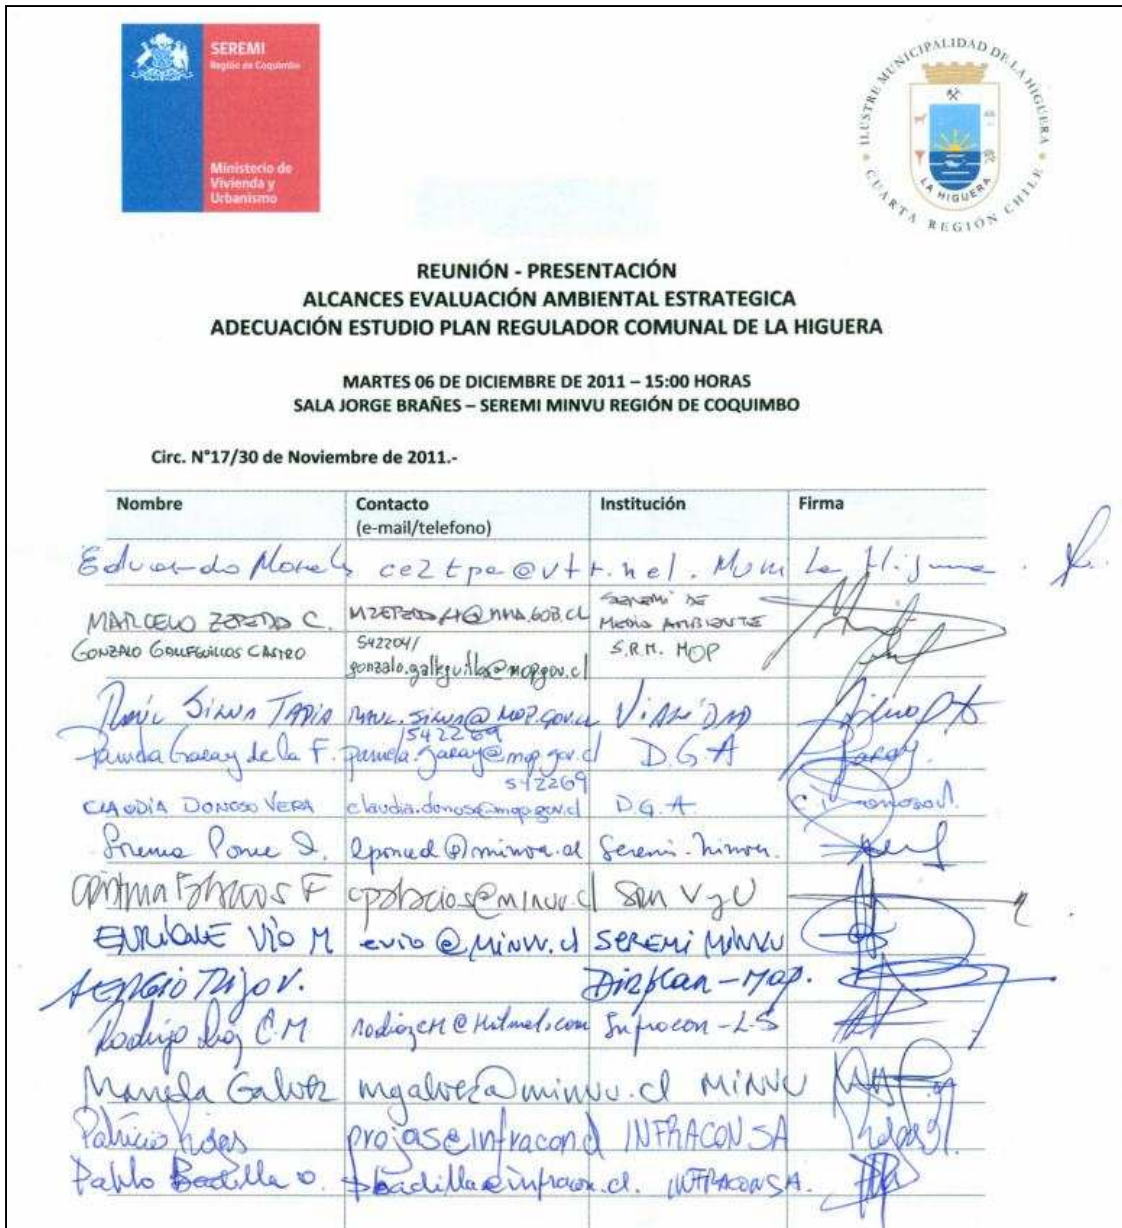 SEREMI
Región de Coquimbo
Ministerio de
Vivienda y
Urbanismo
ILUSTRE MUNICIPALIDAD DE LA HIGUERA
LA HIGUERA
CUARTA REGIÓN CHILE
REUNIÓN - PRESENTACIÓN
ALCANCES EVALUACIÓN AMBIENTAL ESTRATEGICA
ADECUACIÓN ESTUDIO PLAN REGULADOR COMUNAL DE LA HIGUERA
MARTES 06 DE DICIEMBRE DE 2011 – 15:00 HORAS
SALA JORGE BRAÑES – SEREMI MINVU REGIÓN DE COQUIMBO
Circ. N°17/30 de Noviembre de 2011.-
Nombre Contacto Institución Firma
(e-mail/telefono)
Eduardo Muni La Higuera
MARCELO ZEPEDA C. SEREMI DE
MEDIO AMBIENTE
GONZALO GALLEGUILLOS CASTRO 542204/ S.R.M. MOP
gonzalo.galleguillos@mop.gov.cl
Raúl SILVA TAPIA RAUL.SILVA@MOP.GOV.CL VIALIDAD
542269
Pamela Garay de la F. pamela.garay@mop.gov.cl D.G.A
542269
CLAUDIA DONOSO VERA claudia.donoso@mop.gov.cl D.G.A.
Ponce Seremi-Minvu.
SRM V y U
ENRIQUE VÍO M evio@MINVU.cl SEREMI MINVU
SERGIO Dirplan-MOP.
Rodrigo C.M
Mariela Galvez mgalvez@minvu.cl MINVU
Patricio Rojas projas@infracon.cl INFRACON SA
Pablo Badilla O. pbadilla@infracon.cl. INFRACON SA.